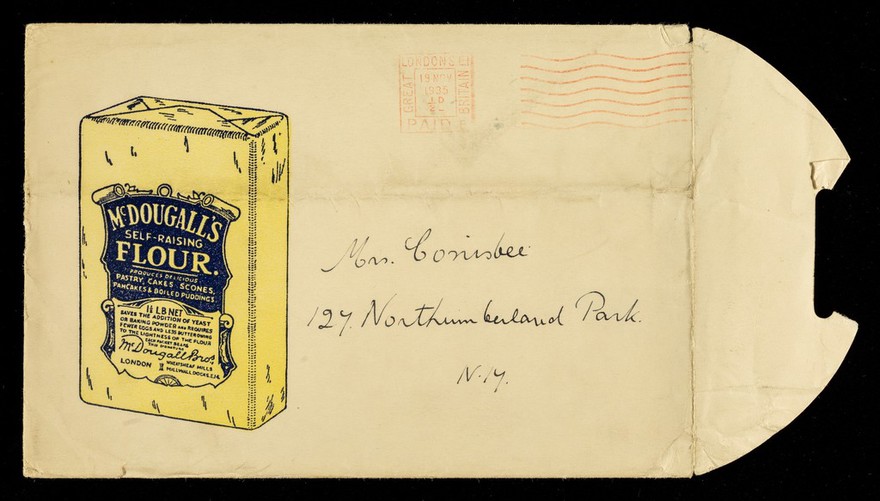 LONDON S.E.1
GREAT
BRITAIN
19 NOV
1935
PAID
McDOUGALL'S
SELF-RAISING
FLOUR.
PRODUCES DELICIOUS
PASTRY, CAKES, SCONES,
PANCAKES & BOILED PUDDINGS.
1½ LB NET
SAVES THE ADDITION OF YEAST
OR BAKING POWDER AND REQUIRES
FEWER EGGS AND LESS BUTTER OWING
TO THE LIGHTNESS OF THE FLOUR
EACH PACKET BEARS
THIS SIGNATURE
McDougall Bros.
LONDON
WHEATSHEAF MILLS
MILLWALL DOCKS. E.14.
Mrs. Conisbee
127. Northumberland Park.
N.17.